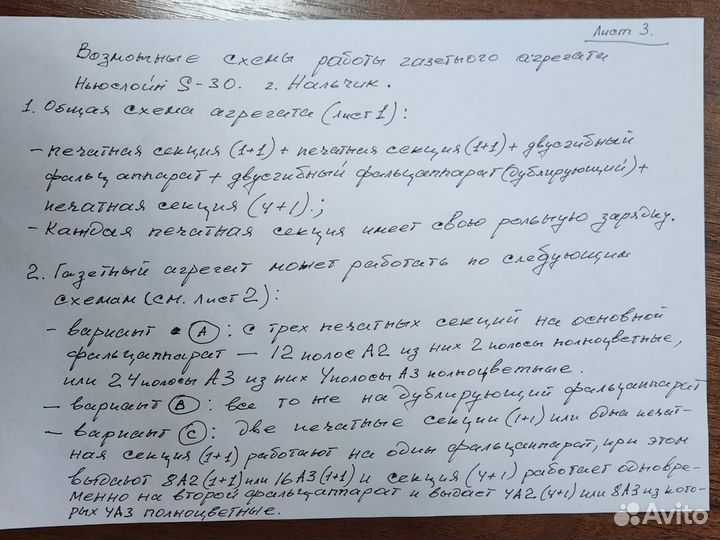 Лист 3.
Возможные схемы работы газетного агрегата
Ньюслайн S-30. г. Нальчик.
1. Общая схема агрегата (лист 1):
- печатная секция (1+1) + печатная секция (1+1) + двусгибный
фальцаппарат + двусгибный фальцаппарат (дублирующий) +
печатная секция (4+1).;
- Каждая печатная секция имеет свою рольную зарядку.
2. Газетный агрегат может работать по следующим
схемам (см. лист 2):
- вариант (A): с трех печатных секций на основной
фальцаппарат — 12 полос А2 из них 2 полосы полноцветные,
или 24 полосы А3 из них 4 полосы А3 полноцветные.
- вариант (B): все то же на дублирующий фальцаппарат
- вариант (C): две печатные секции (1+1) или одна печат-
ная секция (1+1) работают на один фальцаппарат, при этом
выдают 8А2 (1+1) или 16А3 (1+1) и секция (4+1) работает одновре-
менно на второй фальцаппарат и выдает 4А2 (4+1) или 8А3 из кото-
рых 4А3 полноцветные.
Avito